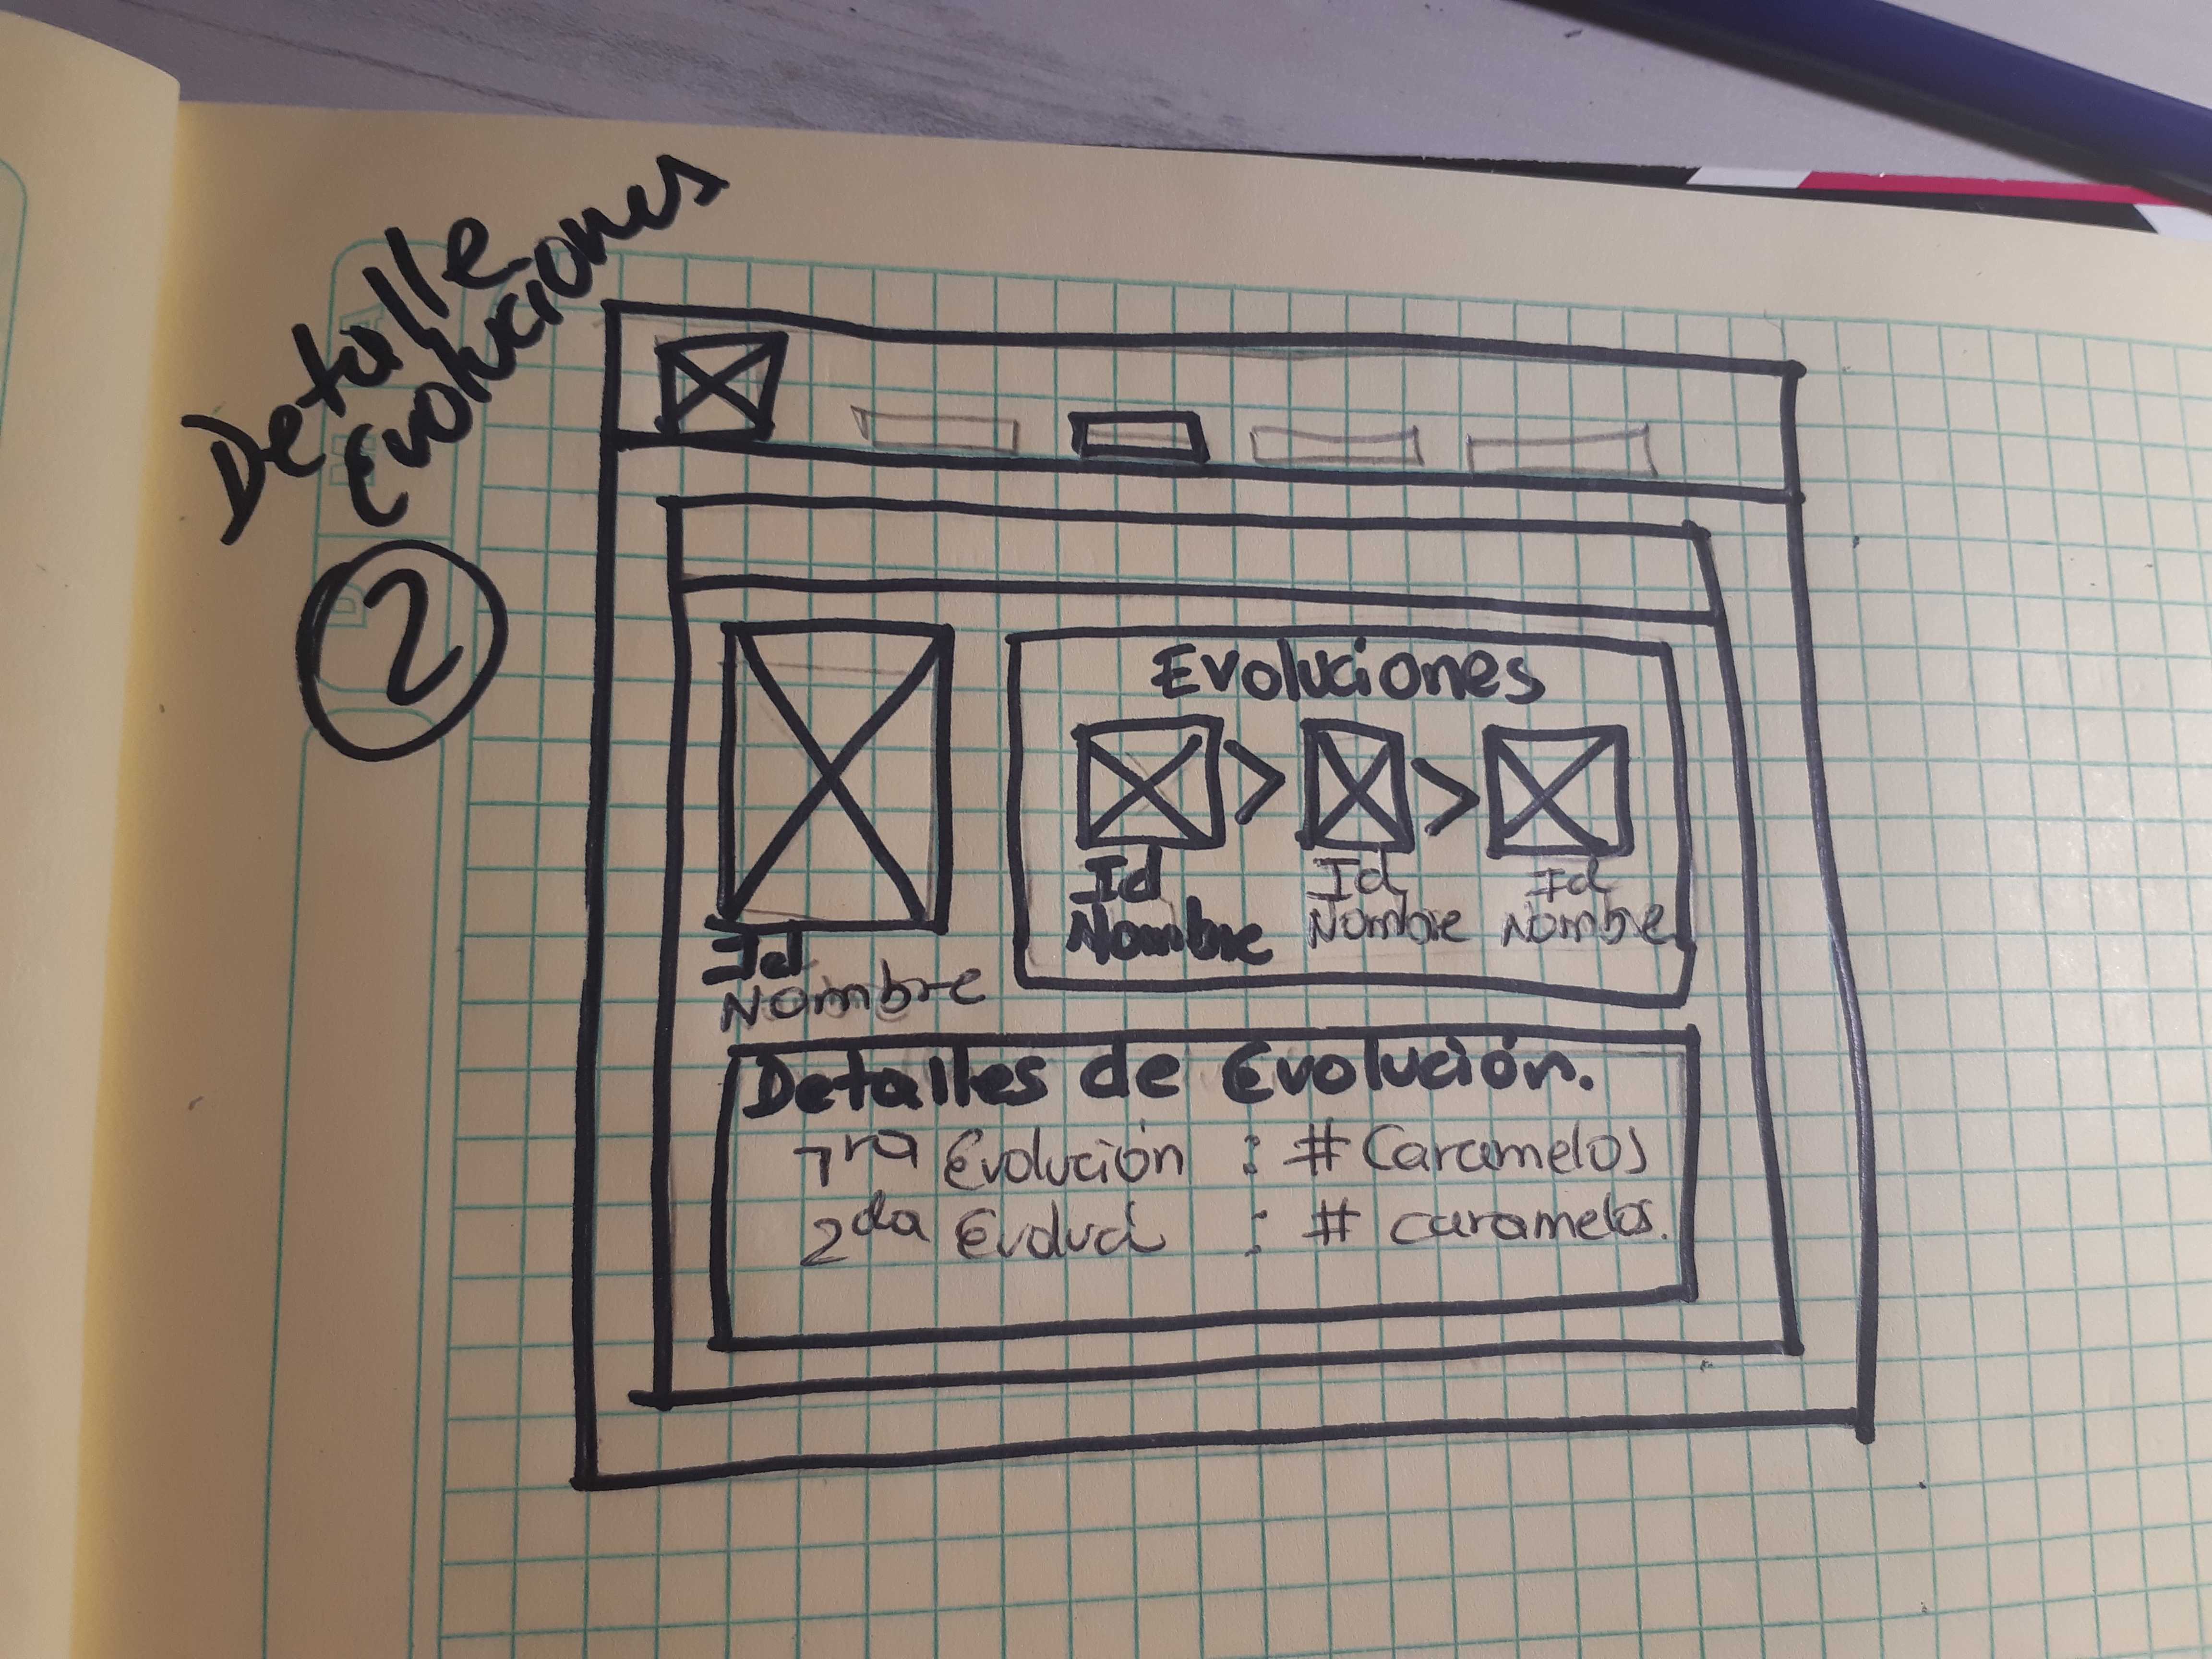 Detalle
Evoluciones
2
Evoluciones
> >
Id Id Id
Nombre Nombre Nombre
Id
Nombre
Detalles de Evolución.
1ra Evolución : # Caramelos
2da Evoluci : # caramelos.